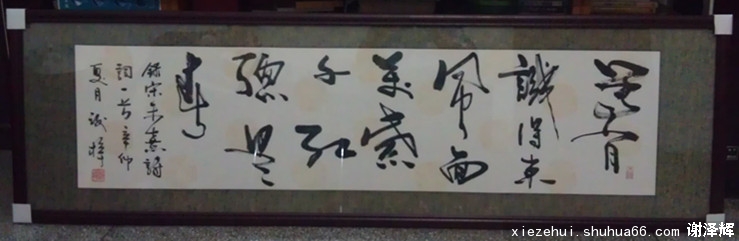 等閒
識得東
風面
萬紫
千紅
總是
春
錄宋朱熹詩
詞一首辛卯
夏月
xiezehui.shuhua66.com 谢泽辉